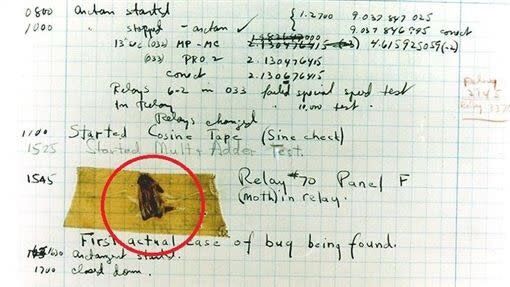 0800 antan started
1000 " stopped - antan ✓ { 1.2700 9.037 847 025
9.037 846 995 conect
13"uc (032) MP - MC 2.130476415 (-3) 4.615925059 (-2)
(033) PRO 2 2.130476415
conect 2.130676415
Relays 6-2 in 033 failed special speed test
In Relay " 10.000 test .
Relays changed
Relay
2145
Relay 337
1100 Started Cosine Tape (Sine check)
1525 Started Mult + Adder Test.
1545 Relay #70 Panel F
(moth) in relay.
First actual case of bug being found.
1630 antangent started.
1700 closed down.